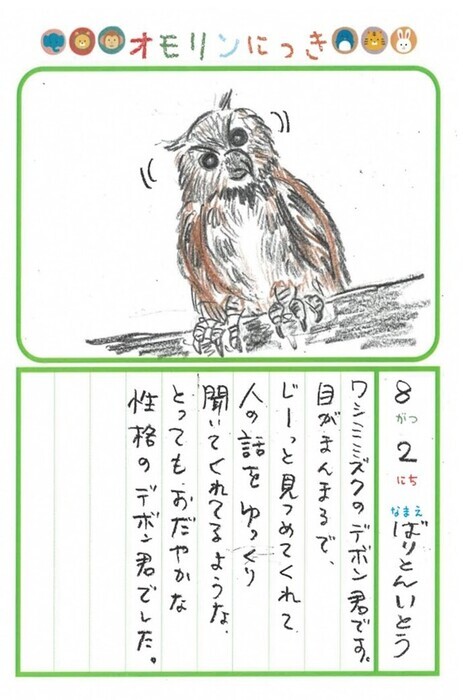 オモリンにっき
8がつ2にち
なまえ ばりとんいとう
ワシミミズクのデボン君です。
目がまんまるで、
じーっと見つめてくれて
人の話をゆっくり
聞いてくれてるような、
とってもおだやかな
性格のデボン君でした。